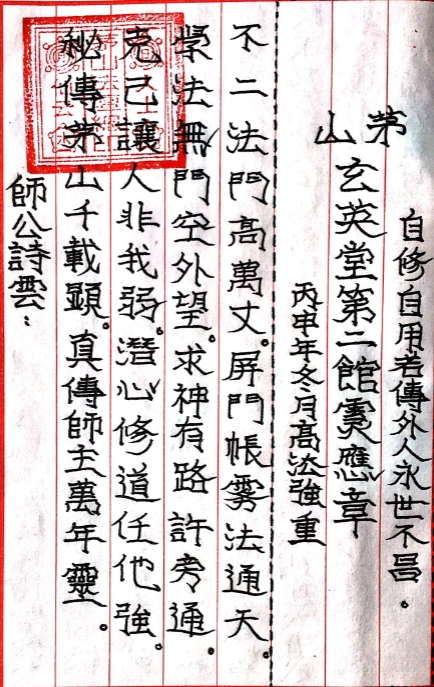 自修自用若傳外人永世不昌。
茅山玄英堂第二館靈應章
丙申年冬月高法強重
不二法門高萬丈。屏門帳雾法通天。
學法無門空外望。求神有路許旁通。
克己讓人非我弱。潛心修道任他強。
秘傳茅山千載顯。真傳師主萬年靈。
師公詩雲：